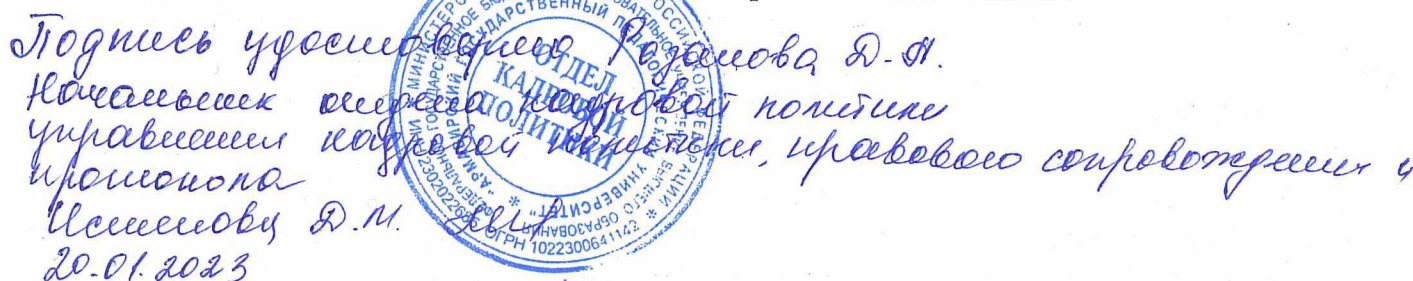 Подпись удостоверяю Розанова Д.А.
Начальник отдела кадровой политики
управления кадровой политики, правового сопровождения и
протокола
Д.М.
20.01.2023
ОТДЕЛ
КАДРОВОЙ
ПОЛИТИКИ
ОГРН 1022300641142